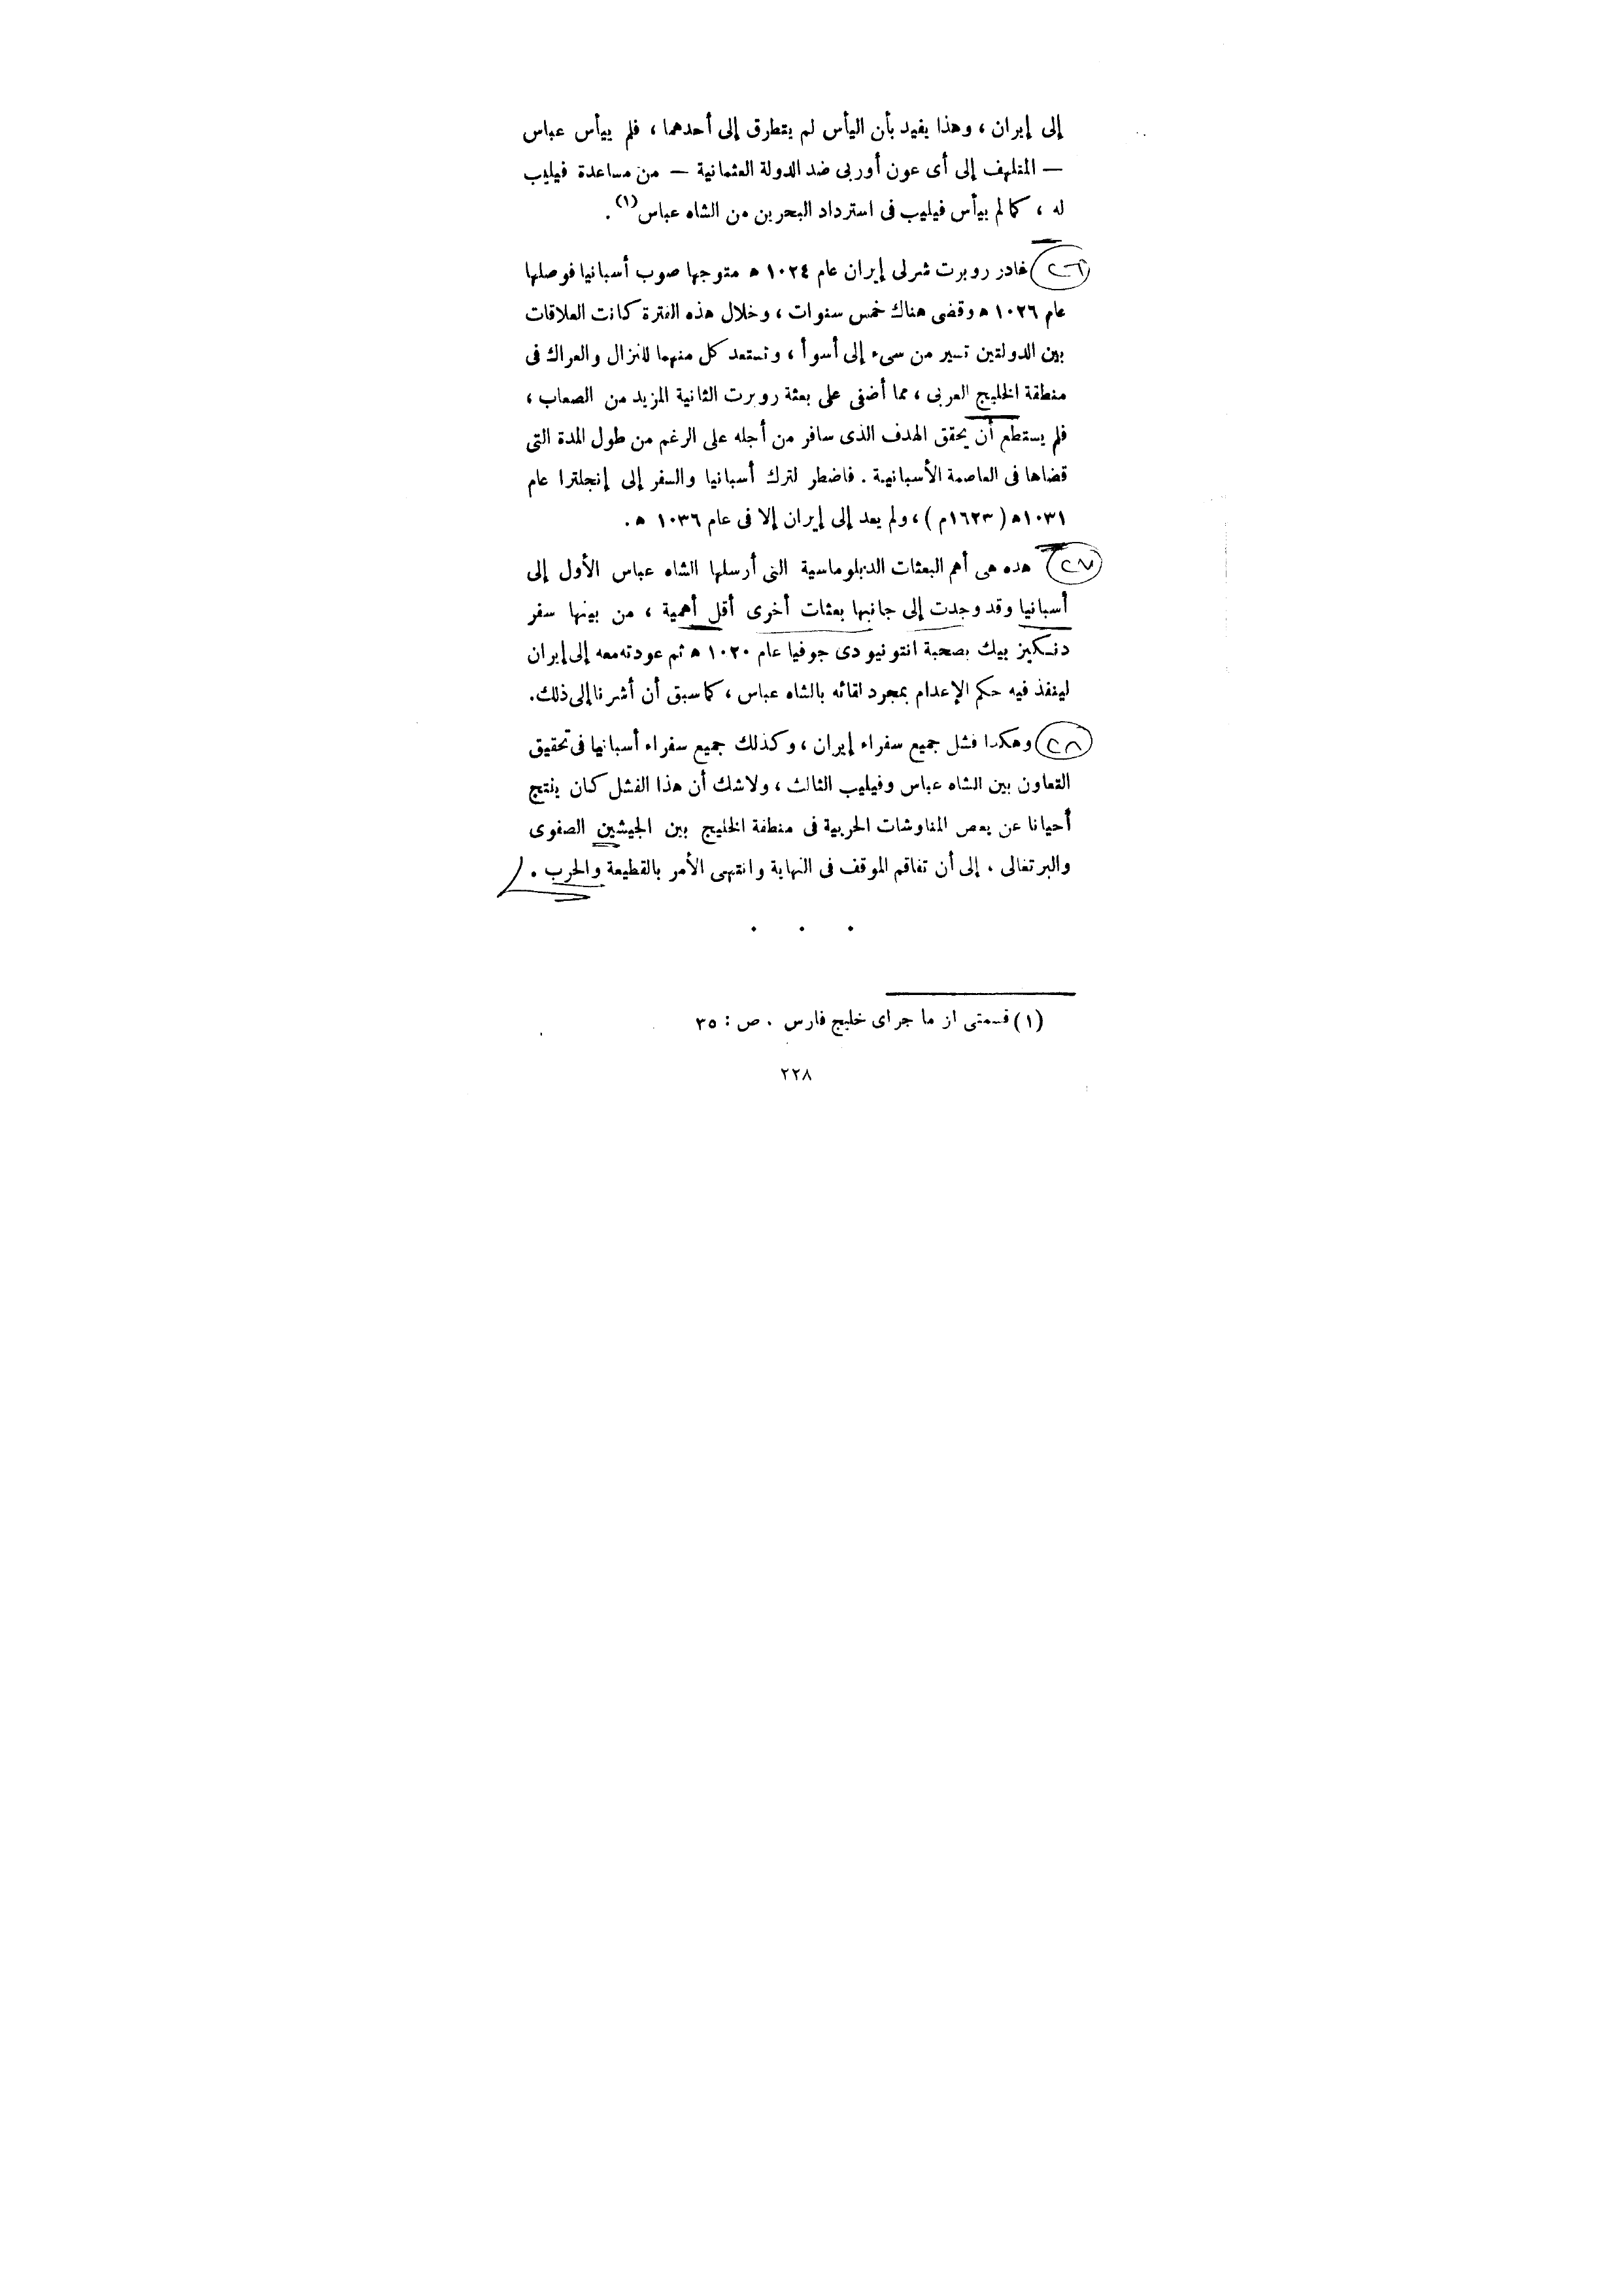 إلى إيران ، وهذا يفيد بأن اليأس لم يتطرق إلى أحدهما ، فلم ييأس عباس
— المتلهف إلى أى عون أوربى ضد الدولة العثمانية — من مساعدة فيليب
له ، كما لم ييأس فيليب فى استرداد البحرين من الشاه عباس(١) .
٢٦ غادر روبرت شرلى إيران عام ١٠٢٤ ه متوجها صوب أسبانيا فوصلها
عام ١٠٢٦ ه وقضى هناك خمس سنوات ، وخلال هذه الفترة كانت العلاقات
بين الدولتين تسير من سىء إلى أسوأ ، وتستعد كل منهما للنزال والعراك فى
منطقة الخليج العربى ، مما أضفى على بعثة روبرت الثانية المزيد من الصعاب ،
فلم يستطع أن يحقق الهدف الذى سافر من أجله على الرغم من طول المدة التى
قضاها فى العاصمة الأسبانية . فاضطر لترك أسبانيا والسفر إلى إنجلترا عام
١٠٣١ه ( ١٦٢٣م ) ، ولم يعد إلى إيران إلا فى عام ١٠٣٦ ه .
٢٧ هذه هى أهم البعثات الدبلوماسية التى أرسلها الشاه عباس الأول إلى
أسبانيا وقد وجدت إلى جانبها بعثات أخرى أقل أهمية ، من بينها سفر
دنـكيز بيك بصحبة انتونيو دى جوفيا عام ١٠٢٠ ه ثم عودته معه إلى إيران
لينفذ فيه حكم الإعدام بمجرد لقائه بالشاه عباس ، كما سبق أن أشرنا إلى ذلك.
٢٨ وهكذا فشل جميع سفراء إيران ، وكذلك جميع سفراء أسبانيا فى تحقيق
التعاون بين الشاه عباس وفيليب الثالث ، ولاشك أن هذا الفشل كان ينتج
أحيانا عن بعض المناوشات الحربية فى منطقة الخليج بين الجيشين الصفوى
والبرتغالى . إلى أن تفاقم الموقف فى النهاية وانتهى الأمر بالقطيعة والحرب .
. . .
(١) قسمتى از ما جراى خليج فارس . ص : ٣٥
٢٢٨